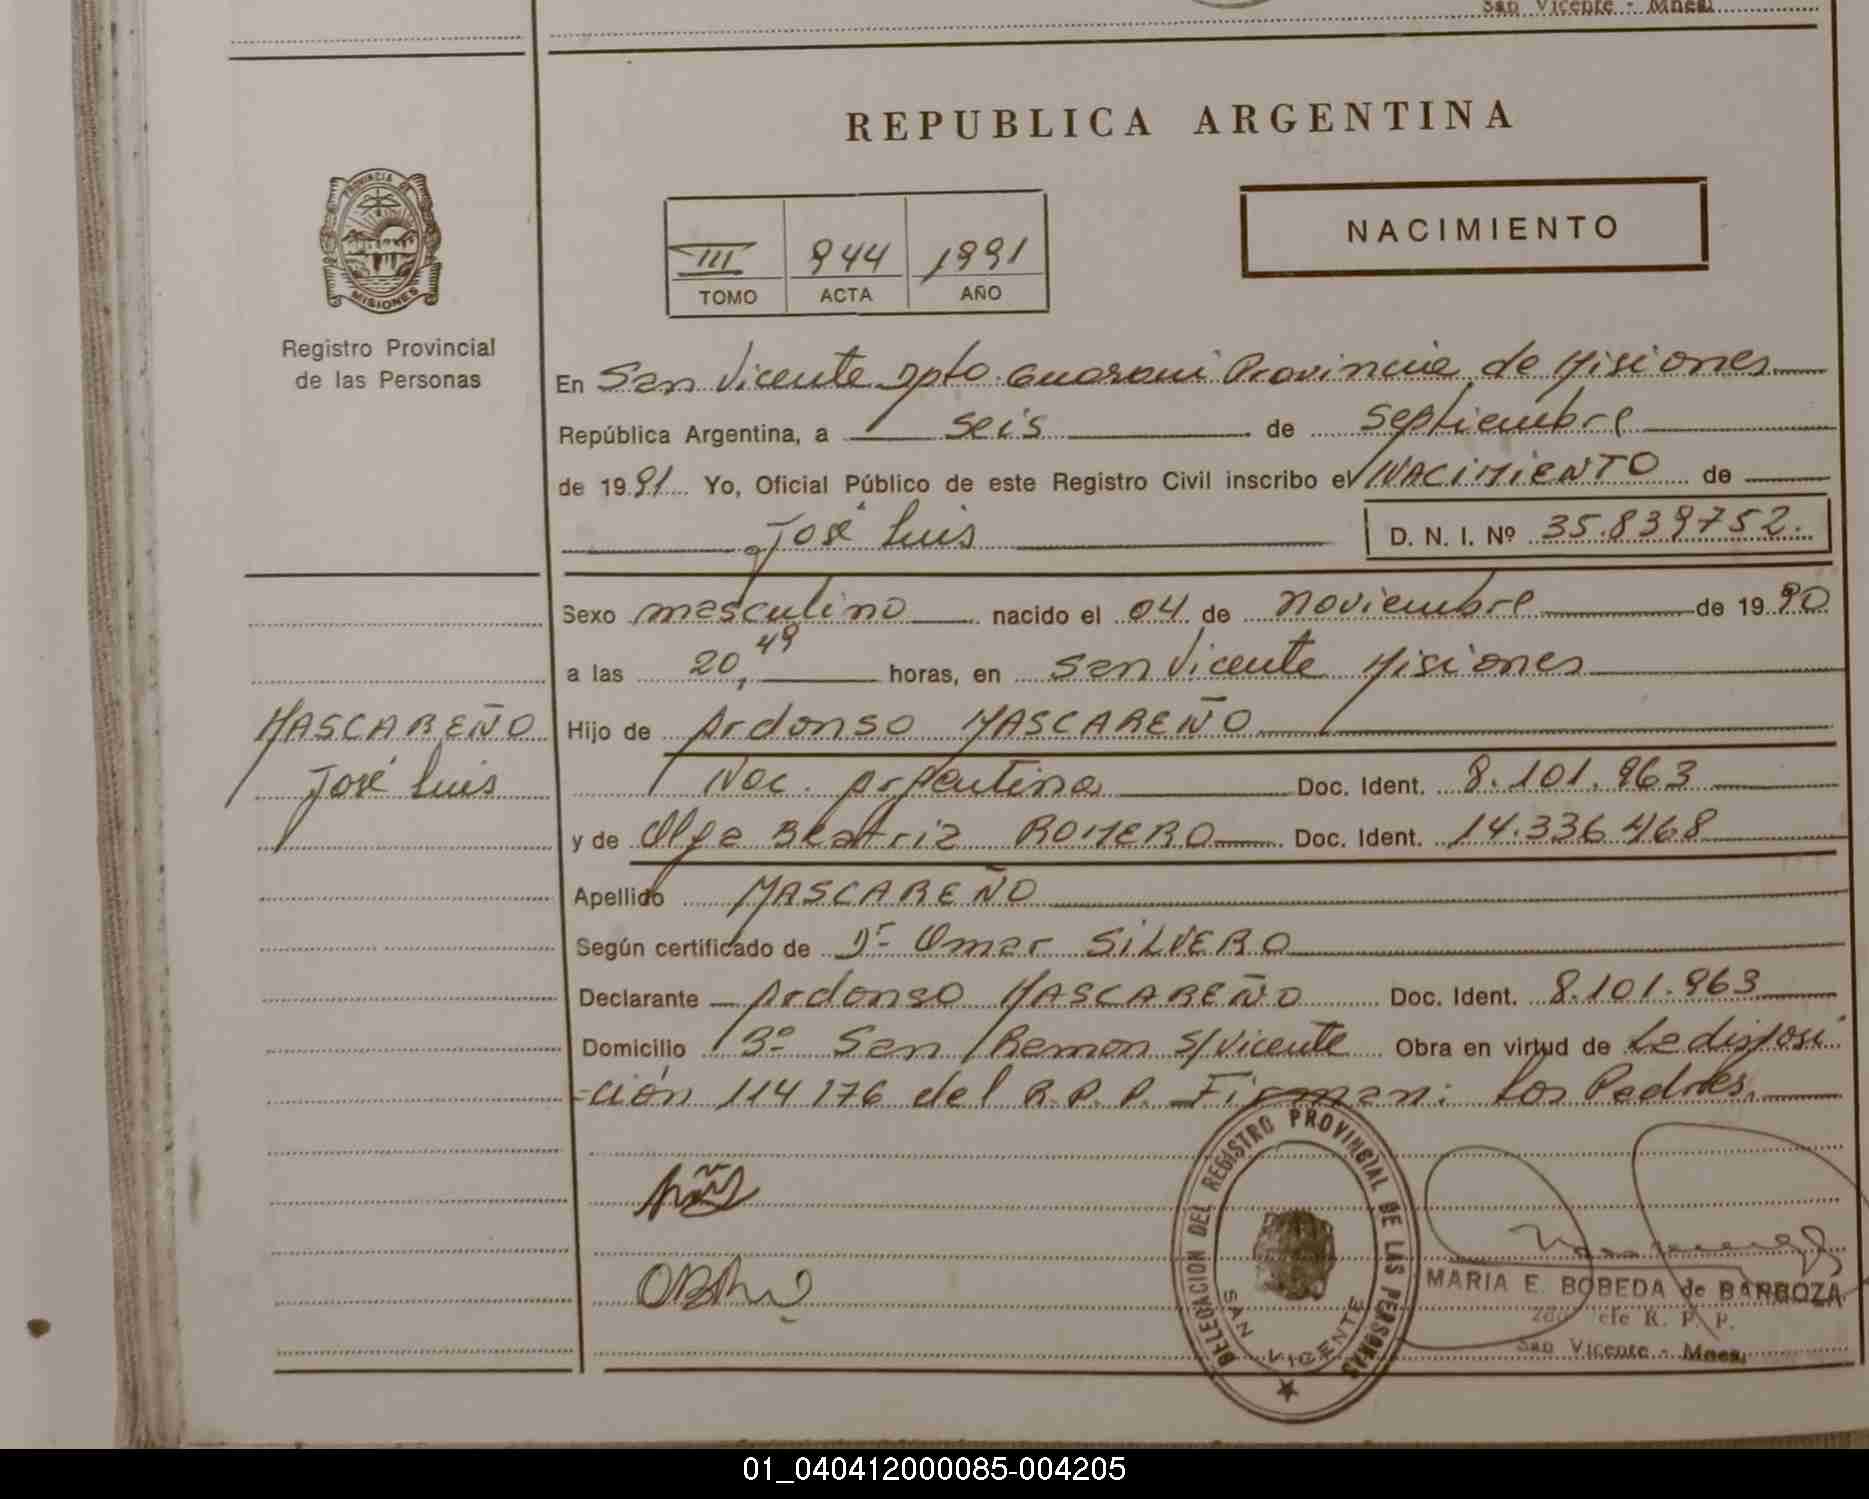 San Vicente - Mnes.
REPUBLICA ARGENTINA
PROVINCIA DE
MISIONES
Registro Provincial
de las Personas
III 944 1991
TOMO ACTA AÑO
NACIMIENTO
En San Vicente Dpto. Guarani Provincia de Misiones
República Argentina, a seis de Septiembre
de 1991 Yo, Oficial Público de este Registro Civil inscribo el NACIMIENTO de
José Luis D. N. I. Nº 35.839752.
Sexo masculino nacido el 04 de noviembre de 1990
a las 20,49 horas, en San Vicente Misiones
MASCAREÑO
José Luis
Hijo de Ardonso MASCAREÑO
Nac. Argentina Doc. Ident. 8.101.963
y de Olga Beatriz ROMERO Doc. Ident. 14.336.468
Apellido MASCAREÑO
Según certificado de Dr Omar SILVERO
Declarante Ardonso MASCAREÑO Doc. Ident. 8.101.963
Domicilio Bº San Ramon S/Vicente Obra en virtud de La disposi
-ción 114176 del R.P.P. Firman: los Padres.
DELEGACION DEL REGISTRO PROVINCIAL DE LAS PERSONAS
SAN VICENTE
MARIA E. BOBEDA de BARBOZA
R. P. P.
San Vicente - Mnes.
01_040412000085-004205